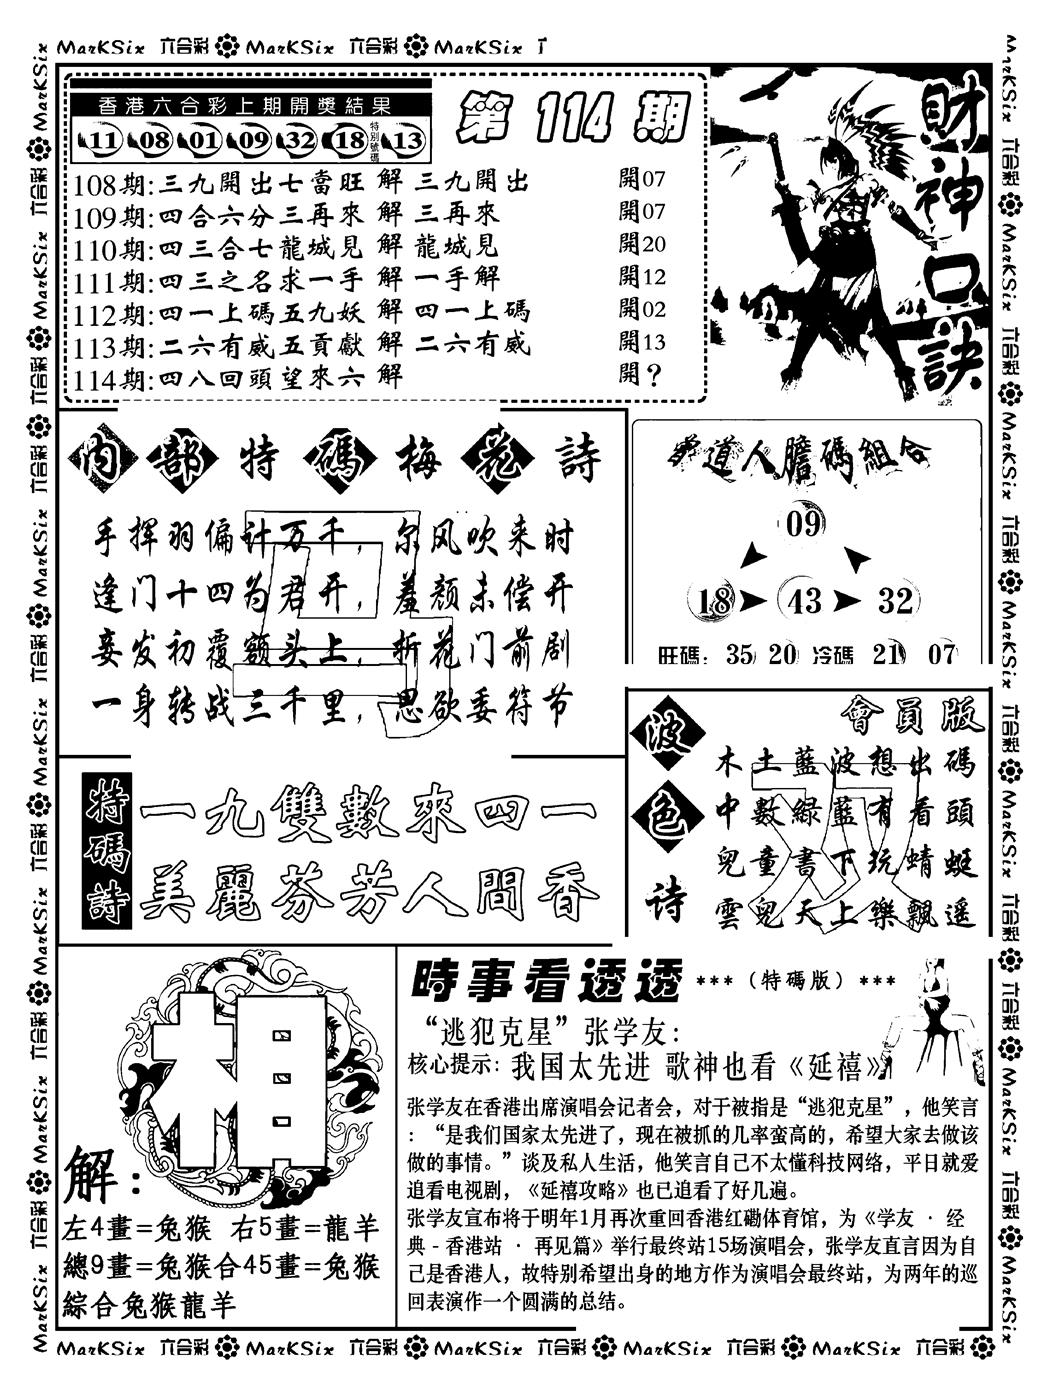 MarKSix 六合彩 MarKSix 六合彩 MarKSix
香港六合彩上期開獎結果
11 08 01 09 32 18 特別號碼 13
第 114 期
108期:三九開出七當旺 解 三九開出 開07
109期:四合六分三再來 解 三再來 開07
110期:四三合七龍城見 解 龍城見 開20
111期:四三之名求一手 解 一手解 開12
112期:四一上碼五九妖 解 四一上碼 開02
113期:二六有威五貢獻 解 二六有威 開13
114期:四八回頭望來六 解 開?
財神口訣
内部特碼梅花詩
手挥羽偏计万千，尔风吹来时
逢门十四为君开，羞颜未偿开
妾发初覆额头上，折花门前剧
一身转战三千里，思欲委符节
道人膽碼組合
09
18 43 32
旺碼: 35 20 冷碼 21 07
波色诗
會員版
木土藍波想出碼
中數綠藍有看頭
兒童書下玩蜻蜓
雲兒天上樂飄遥
双
特碼詩
一九雙數來四一
美麗芬芳人間香
相
解:
左4畫=兔猴 右5畫=龍羊
總9畫=兔猴合45畫=兔猴
綜合兔猴龍羊
時事看透透 ***（特碼版）***
“逃犯克星”张学友:
核心提示: 我国太先进 歌神也看《延禧》
张学友在香港出席演唱会记者会，对于被指是“逃犯克星”，他笑言
：“是我们国家太先进了，现在被抓的几率蛮高的，希望大家去做该
做的事情。”谈及私人生活，他笑言自己不太懂科技网络，平日就爱
追看电视剧，《延禧攻略》也已追看了好几遍。
张学友宣布将于明年1月再次重回香港红磡体育馆，为《学友 · 经
典 - 香港站 · 再见篇》举行最终站15场演唱会，张学友直言因为自
己是香港人，故特别希望出身的地方作为演唱会最终站，为两年的巡
回表演作一个圆满的总结。
MarKSix 六合彩 MarKSix 六合彩 MarKSix 六合彩 MarKSix 六合彩 MarKSix 六合彩